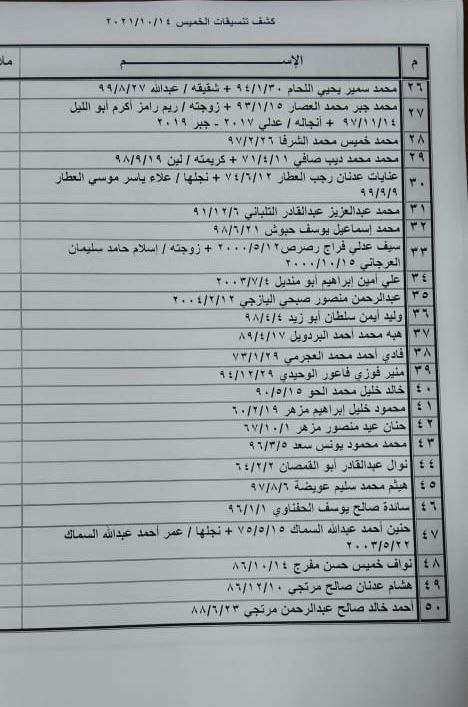 كشف تنسيقات الخميس ٢٠٢١/١٠/١٤
م الإســـم ملا
٢٦ محمد سمير يحيي اللحام ٩٤/١/٣٠ + شقيقه / عبدالله ٩٩/٨/٢٧
٢٧ محمد جبر محمد العصار ٩٣/١/١٥ + زوجته / ريم رامز أكرم أبو الليل
٩٧/١١/١٤ + أنجاله / عدلي ٢٠١٧ - جبر ٢٠١٩
٢٨ محمد خميس محمد الشرفا ٩٧/٢/٢٦
٢٩ محمد محمد ديب صافي ٧١/٤/١١ + كريمته / لين ٩٨/٩/١٩
٣٠ عنايات عدنان رجب العطار ٧٤/٦/١٢ + نجلها / علاء ياسر موسي العطار
٩٩/٩/٩
٣١ محمد عبدالعزيز عبدالقادر التلباني ٩١/١٢/٦
٣٢ محمد إسماعيل يوسف حبوش ٩٨/٦/٢١
٣٣ سيف عدلي فراج رصرص ٢٠٠٠/٥/١٢ + زوجته / إسلام حامد سليمان
العرجاني ٢٠٠٠/١٠/١٥
٣٤ علي أمين إبراهيم أبو منديل ٢٠٠٣/٧/٤
٣٥ عبدالرحمن منصور صبحي اليازجي ٢٠٠٤/٢/١٢
٣٦ وليد أيمن سلطان أبو زيد ٩٨/٤/٤
٣٧ هبه محمد أحمد البردويل ٨٩/٤/١٧
٣٨ فادي أحمد محمد العجرمي ٧٣/١/٢٩
٣٩ منير فوزي فاعور الوحيدي ٩٤/١٢/٢٩
٤٠ خالد خليل محمد الحو ٩٠/٥/١٥
٤١ محمود خليل إبراهيم مزهر ٦٠/٢/١٩
٤٢ حنان عيد منصور مزهر ٦٧/١٠/١
٤٣ محمد محمود يونس سعد ٩٦/٣/٥
٤٤ نوال عبدالقادر أبو القمصان ٦٤/٢/٢
٤٥ هيثم محمد سليم عويضة ٩٧/٨/٦
٤٦ ساندة صالح يوسف الحفناوي ٩٦/١/١
٤٧ حنين أحمد عبدالله السماك ٧٥/٥/١٥ + نجلها / عمر أحمد عبدالله السماك
٢٠٠٣/٥/٢٢
٤٨ نواف خميس حسن مفرج ٨٦/١٠/١٤
٤٩ هشام عدنان صالح مرتجي ٨٦/١٢/١٠
٥٠ أحمد خالد صالح عبدالرحمن مرتجي ٨٨/٦/٢٣